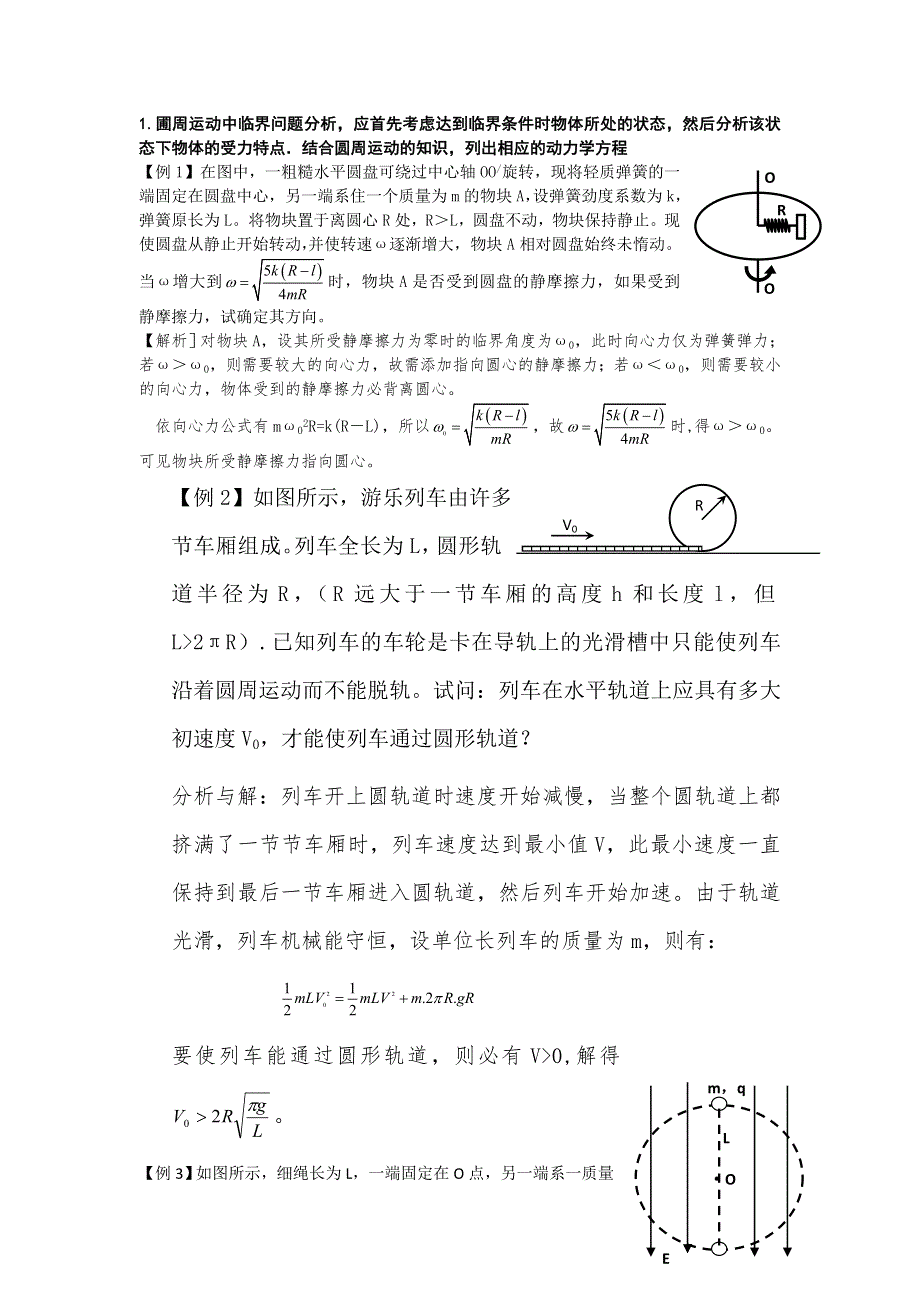 1.圃周运动中临界问题分析，应首先考虑达到临界条件时物体所处的状态，然后分析该状
态下物体的受力特点．结合圆周运动的知识，列出相应的动力学方程
【例1】在图中，一粗糙水平圆盘可绕过中心轴OO/旋转，现将轻质弹簧的一
端固定在圆盘中心，另一端系住一个质量为m的物块A，设弹簧劲度系数为k，
弹簧原长为L。将物块置于离圆心R处，R＞L，圆盘不动，物块保持静止。现
使圆盘从静止开始转动，并使转速ω逐渐增大，物块A相对圆盘始终未惰动。
当ω增大到 ω=√(5k(R−l)/4mR) 时，物块A是否受到圆盘的静摩擦力，如果受到
静摩擦力，试确定其方向。
O
R
O
【解析]对物块A，设其所受静摩擦力为零时的临界角度为ω₀，此时向心力仅为弹簧弹力；
若ω＞ω₀，则需要较大的向心力，故需添加指向圆心的静摩擦力；若ω＜ω₀，则需要较小
的向心力，物体受到的静摩擦力必背离圆心。
依向心力公式有mω₀²R=k(R－L)，所以 ω₀=√(k(R−l)/mR)，故 ω=√(5k(R−l)/4mR) 时,得ω＞ω₀。
可见物块所受静摩擦力指向圆心。
【例2】如图所示，游乐列车由许多
节车厢组成。列车全长为L，圆形轨
道半径为R，（R远大于一节车厢的高度h和长度l，但
L>2πR）.已知列车的车轮是卡在导轨上的光滑槽中只能使列车
沿着圆周运动而不能脱轨。试问：列车在水平轨道上应具有多大
初速度V₀，才能使列车通过圆形轨道？
V₀
R
分析与解：列车开上圆轨道时速度开始减慢，当整个圆轨道上都
挤满了一节节车厢时，列车速度达到最小值V，此最小速度一直
保持到最后一节车厢进入圆轨道，然后列车开始加速。由于轨道
光滑，列车机械能守恒，设单位长列车的质量为m，则有：
½mLV₀²=½mLV²+m.2πR.gR
要使列车能通过圆形轨道，则必有V>0,解得
V₀>2R√(πg/L)。
【例3】如图所示，细绳长为L，一端固定在O点，另一端系一质量
m，q
L
O
E